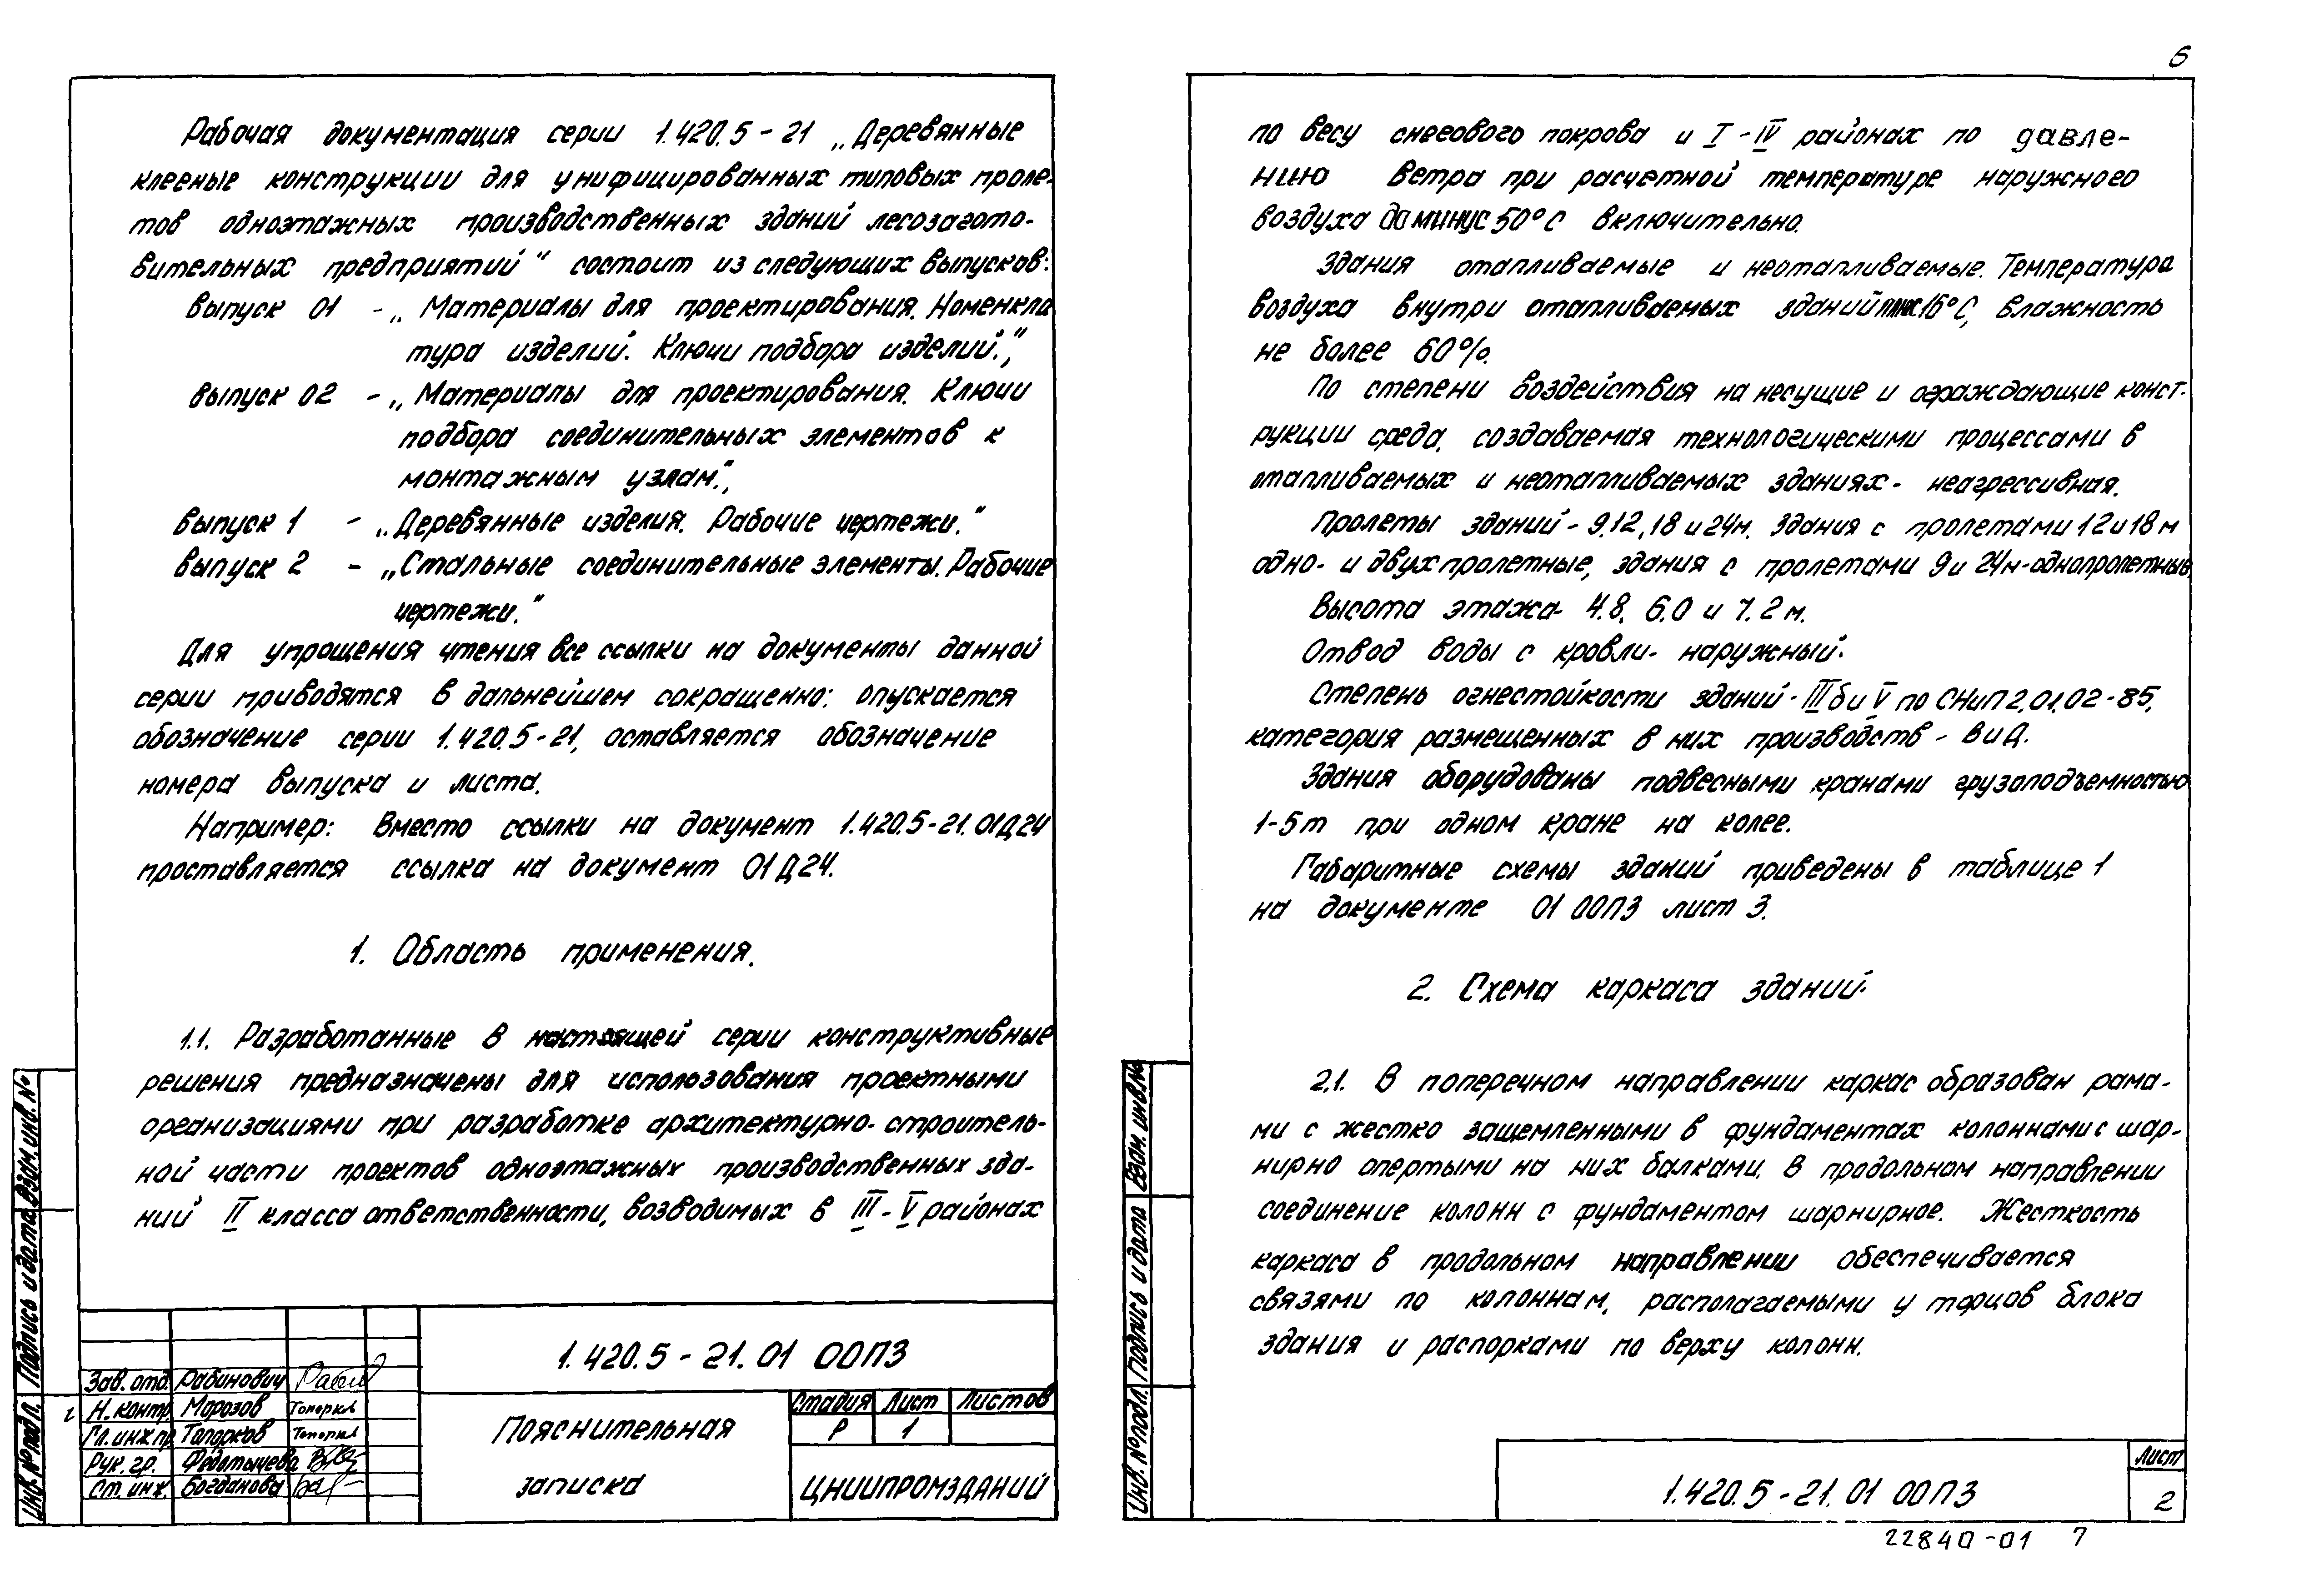 Рабочая документация серии 1.420.5-21 „Деревянные
клееные конструкции для унифицированных типовых проле-
тов одноэтажных производственных зданий лесозагото-
вительных предприятий" состоит из следующих выпусков:
Выпуск 01 - „Материалы для проектирования. Номенкла
тура изделий. Ключи подбора изделий.",
Выпуск 02 - „Материалы для проектирования. Ключи
подбора соединительных элементов к
монтажным узлам.",
Выпуск 1 - „Деревянные изделия. Рабочие чертежи."
Выпуск 2 - „Стальные соединительные элементы. Рабочие
чертежи."
Для упрощения чтения все ссылки на документы данной
серии приводятся в дальнейшем сокращенно: опускается
обозначение серии 1.420.5-21, оставляется обозначение
номера выпуска и листа.
Например: Вместо ссылки на документ 1.420.5-21.01Д24
проставляется ссылка на документ 01Д24.
1. Область применения.
1.1. Разработанные в настоящей серии конструктивные
решения предназначены для использования проектными
организациями при разработке архитектурно-строитель-
ной части проектов одноэтажных производственных зда-
ний II класса ответственности, возводимых в III-V районах
Инв. № подл. Подпись и дата Взам. инв. №
1.420.5-21.01 00ПЗ
Зав. отд. Рабинович
Н. контр. Морозов
Гл. инж. пр. Топорков
Рук. гр. Федотычева
Ст. инж. Богданова
Пояснительная
записка
Стадия Лист Листов
Р 1
ЦНИИПРОМЗДАНИЙ
6
по весу снегового покрова и I-IV районах по давле-
нию ветра при расчетной температуре наружного
воздуха до минус 50°С включительно.
Здания отапливаемые и неотапливаемые. Температура
воздуха внутри отапливаемых зданий плюс 16°С, влажность
не более 60%.
По степени воздействия на несущие и ограждающие конст-
рукции среда, создаваемая технологическими процессами в
отапливаемых и неотапливаемых зданиях - неагрессивная.
Пролеты зданий - 9,12,18 и 24м. Здания с пролетами 12 и 18 м
одно- и двухпролетные, здания с пролетами 9 и 24м-однопролетные.
Высота этажа- 4.8, 6.0 и 7.2 м.
Отвод воды с кровли- наружный.
Степень огнестойкости зданий - IIIб и V по СНиП 2.01.02-85,
категория размещенных в них производств - В и Д.
Здания оборудованы подвесными кранами грузоподъемностью
1-5т при одном кране на колее.
Габаритные схемы зданий приведены в таблице 1
на документе 01 00ПЗ лист 3.
2. Схема каркаса зданий.
2.1. В поперечном направлении каркас образован рама-
ми с жестко защемленными в фундаментах колоннами с шар-
нирно опертыми на них балками. В продольном направлении
соединение колонн с фундаментом шарнирное. Жесткость
каркаса в продольном направлении обеспечивается
связями по колоннам, располагаемыми у торцов блока
здания и распорками по верху колонн.
Инв. № подл. Подпись и дата Взам. инв. №
1.420.5-21.01 00ПЗ
Лист
2
22840-01 7